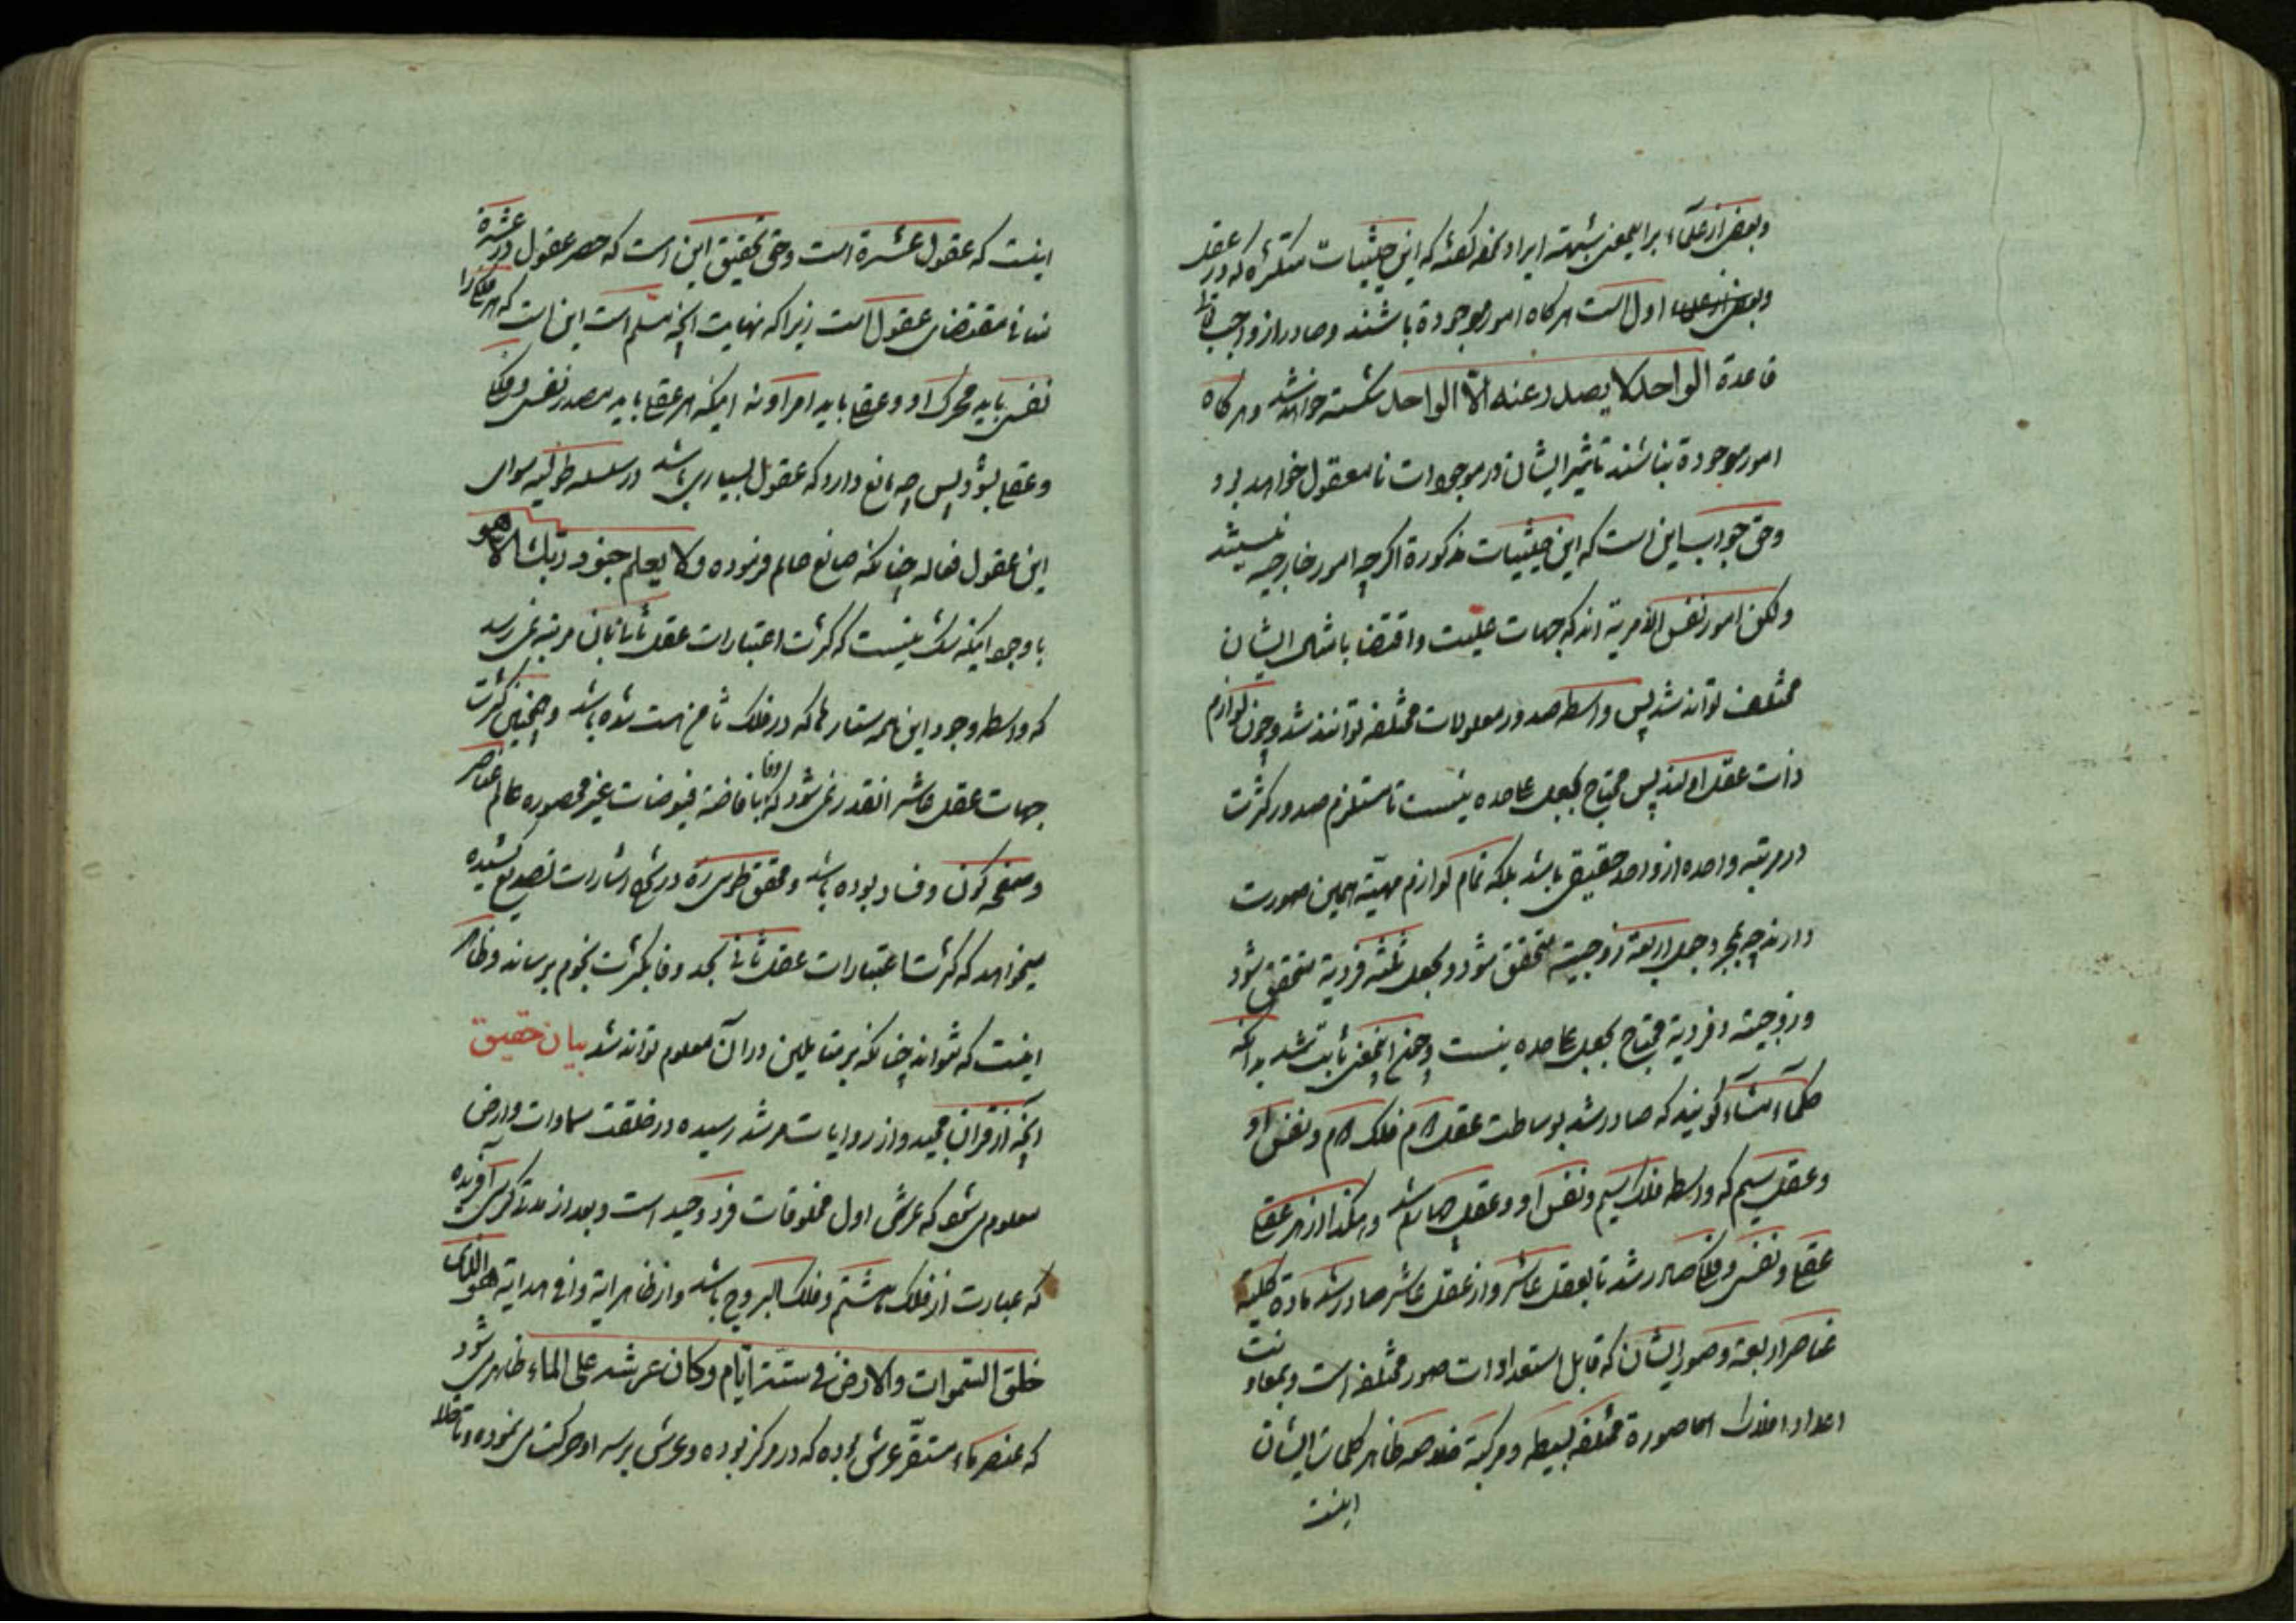 وبعض از علماء برایمعنی شبهه ایراد نموده گفته که این حیثیات متکثره که در عقل
اول است هر کاه امور موجودة باشند وصادر از واجب
قاعدة الواحد لا یصدر عنه الّا الواحد شکسته خواهد شد وهر کاه
امور موجودة نباشند تاثیر ایشان در موجودات نامعقول خواهد بود
وحق جواب این است که این حیثیات مذکورة اکرچه امور خارجیه نیستند
ولکن امور نفس الامریة اند که جهات علیت واقتضا باشد ایشان
مختلف تواند شد پس واسطه صدور معلولات مختلفه توانند شد وچون لوازم
ذات عقل اولند پس محتاج بجعل عاحده نیست تا مستلزم صدور کثرت
در مرتبه واحده از واحد حقیقی باشد بلکه تمام لوازم مهیّة همین صورت
دارند چه بمجرد جعل اربعة زوجیة متحقق شود وبجعل ثلثه فردیة متحقق شود
وزوجیة وفردیة محتاج بجعل عاحده نیست وچون اینمعنی ثابت شد بدانکه
حکماء مشاء کویند که صادر شد بوساطت عقل دوم فلک دوم ونفس او
وعقل سیم که واسطه فلک سیم ونفس او وعقل چهارم باشد وهکذا از هر عقلی
عقلی ونفسی وفلکی صادر شد تا بعقل عاشر واز عقل عاشر صادر شد مادة کلیة
عناصر اربعة وصور ایشان که قابل استعدادات صور مختلفه است وبمعاونت
اعداد افلاک صورة مختلفه بسیطه ومرکبة خلاصه ظاهر کلمات ایشان
اینست
اینست که عقول عشرة است وحق تحقیق این است که حصر عقول در عشرة
نه مقتضای عقول است زیرا که نهایت آنچه مسلم است این است که هر فلکی را
نفسی باید محرک او وعقلی باید امر او نه اینکه هر عقلی باید مصدر نفس وفلک
وعقلی بشود پس چه مانع دارد که عقول بسیاری باشد در سلسله طولیه سوای
این عقول فعاله چنانکه صانع عالم فرموده ولا یعلم جنود ربّک الّا هو
با وجود اینکه شک نیست که کثرت اعتبارات عقل ثانی بان مرتبه نمی رسد
که واسطه وجود این همه ستارها که در فلک ثامن است شده باشد وهمچنین کثرت
جهات عقل عاشر انقدر نمی شود که وفا بافاضة فیوضات غیر محصوره عالم عناصر
وصفحه کون وفساد بوده باشد ومحقق طوسی ره در شرح اشارات تصدیع کشیده
میخواهد که کثرت اعتبارات عقل ثانی بحد وفا بکثرت نجوم برساند وظاهر
اینست که نتواند چنانکه بر متاملین در آن معلوم تواند شد بیان حقیق
آنچه از قرآن مجید واز روایات مرشد رسیده در خلقت سماوات وارض
معلوم می شود که عرش اول مخلوقات فرد وحید است وبعد از مدتی کرسی آفریده
که عبارت از فلک هشتم وفلک البروج باشد واز ظاهر ایة وافی هدایة هو الذی
خلق السّموات والارض فی ستّة ایّام وکان عرشه علی الماء ظاهر می شود
که عنصر ماء مستقرّ عرش بوده که در مرکز بوده وعرش بر سر او حرکت می نموده